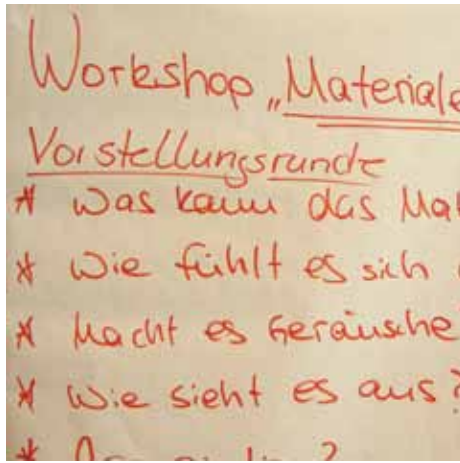 Workshop „Materiale
Vorstellungsrunde
* Was kann das Mat
* Wie fühlt es sich
* Macht es Geräusche
* Wie sieht es aus?
*